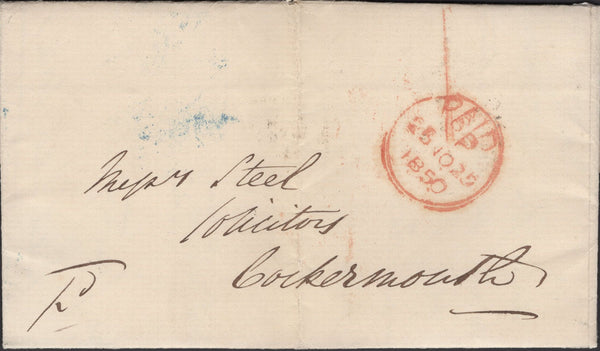 PAID
25 OC 25
1850
Messrs Steel
Solicitors
Cockermouth
Pd